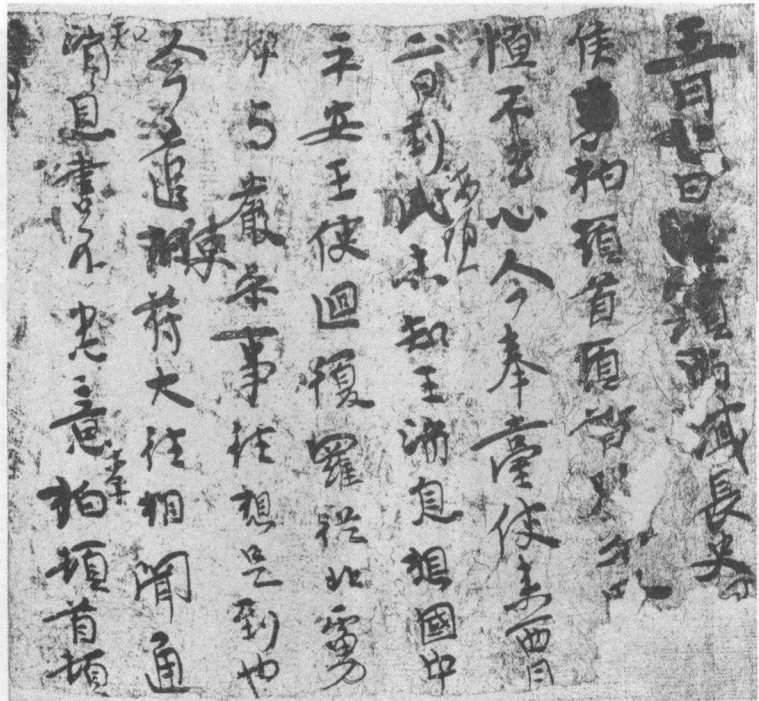 五月七日西域長史
侯柏頓首頓首別
恒不去心今奉臺使來西月
二日到此海頭未知王消息想國中
平安王使迴復羅從北虜
中与嚴參事往想是到也
今遣使苻大往相聞通
知消息書不悉意李柏頓首頓